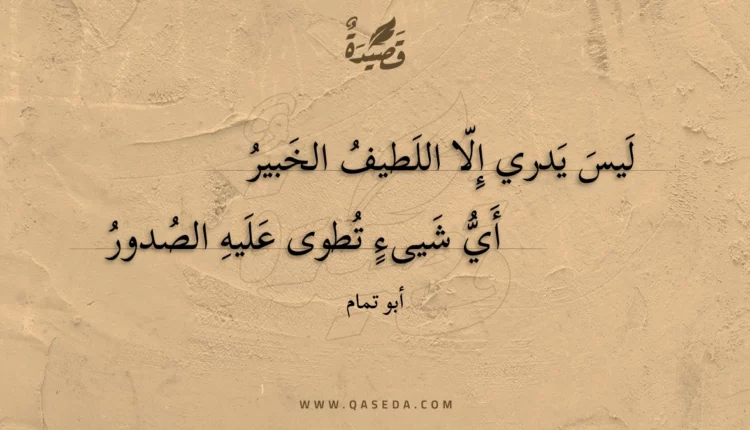 قَصِيدَةٌ
لَيسَ يَدري إِلّا اللَطيفُ الخَبيرُ
أَيُّ شَييءٍ تُطوى عَلَيهِ الصُدورُ
أبو تمام
WWW.QASEDA.COM